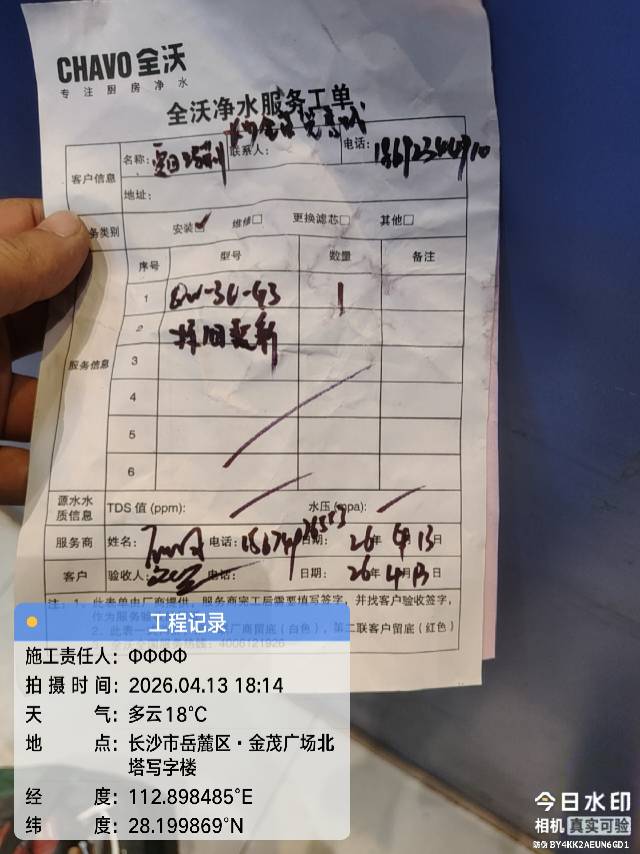 CHAVO 全沃
专注厨房净水
全沃净水服务工单
客户信息
名称：
联系人：
电话：
地址：
服务类别
安装☑ 维修□ 更换滤芯□ 其他□
服务信息
序号 型号 数量 备注
1 1
2 择旧更新
3
4
5
6
源水水质信息
TDS 值 (ppm)： 水压 (mpa)：
服务商 姓名： 电话： 日期： 26年 4月 13日
客户 验收人： 电话： 日期： 26年 4月 13日
注：1、此表单由厂商提供，服务商完工后需要填写签字，并找客户验收签字，
作为服务
2、此表一 厂商留底（白色），第二联客户留底（红色）
4006121926
工程记录
施工责任人：ΦΦΦΦ
拍摄时间：2026.04.13 18:14
天气：多云18℃
地点：长沙市岳麓区·金茂广场北塔写字楼
经度：112.898485°E
纬度：28.199869°N
今日水印
相机 真实可验
防伪 BY4KK2AEUN6GD1